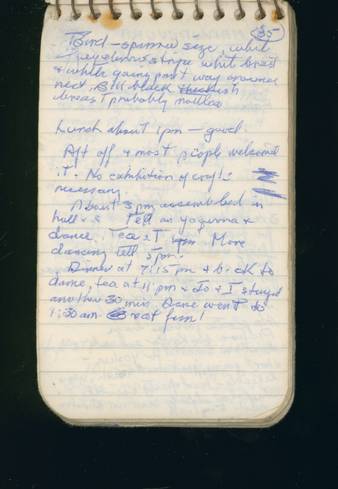 35
Bird - sparrow size, white
eyebrow stripe white breast
& white going part way around
neck. Bill black
breast probably
Lunch about 1pm - good.
Aft off & most people welcomed
it. No exhibition of crafts
necessary.
About 3pm assembled in
hall &
dance. Tea & More
dancing till 5pm.
Dinner at 7:15pm & back to
dance, tea at 11 pm & Jo & I stayed
another 30 min. Dance went to
1:30am. Great fun!